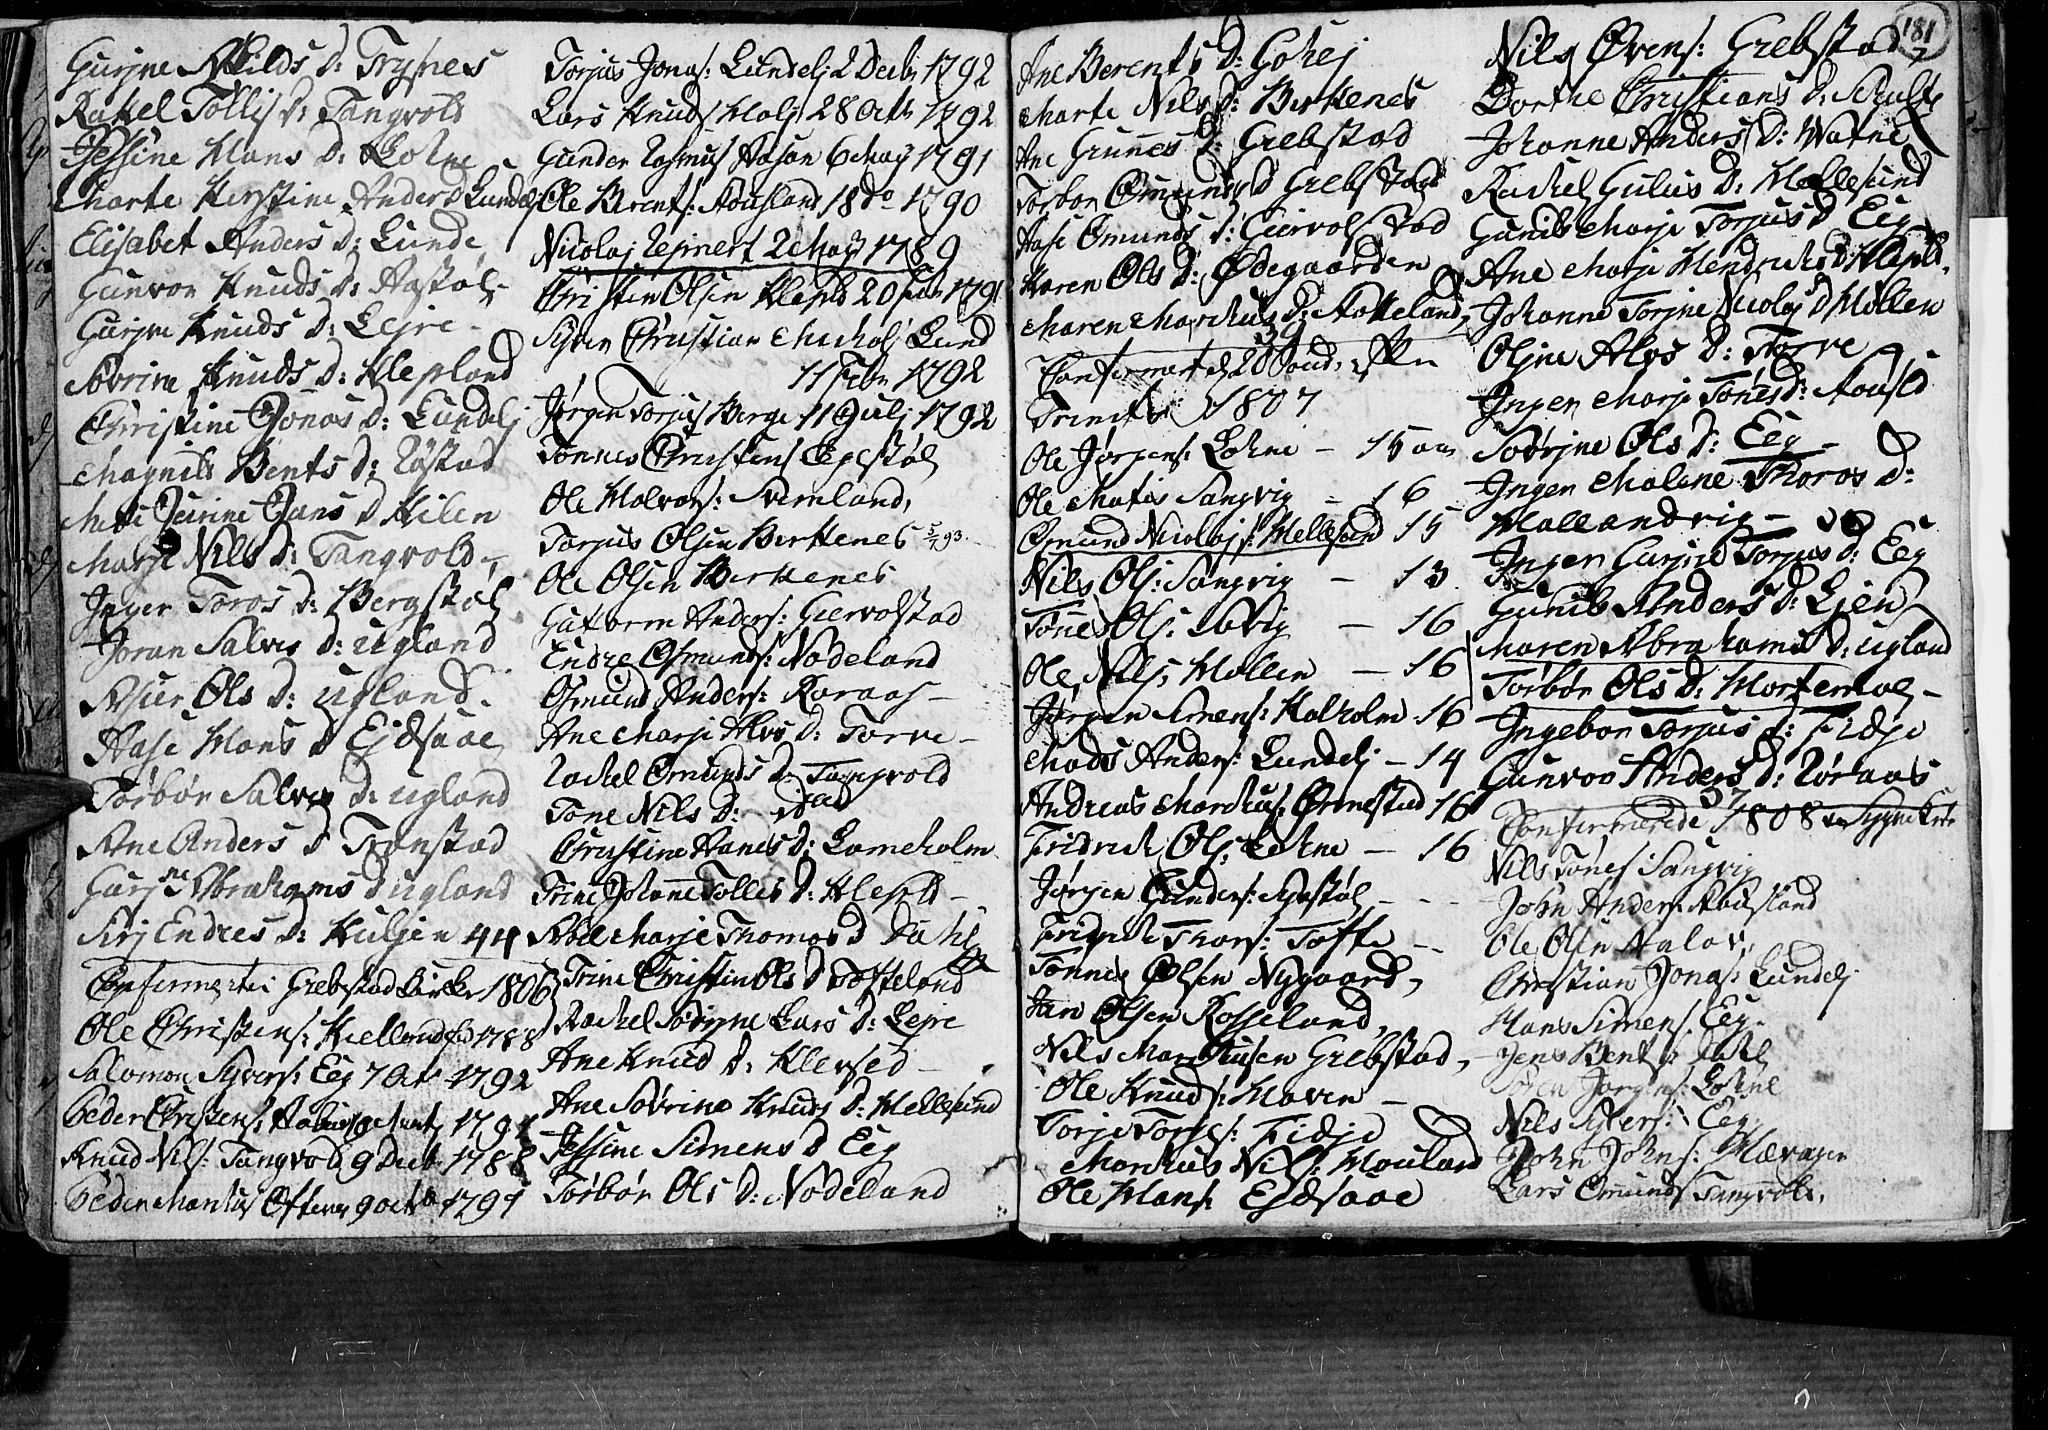 Gurine Askilds D: Trysnes
Rakel Tollis D: Tangvold
Jessine Hans D: Lohne
Marte Kirstine Anders D Lundej
Elisabet Anders D: Lunde
Gunvor Knuds D: Aastøl
Gurine Knuds D: Lejre
Sørine Knuds D: Klepland
Christine Jonas D: Lundej
Magnild Bents D: Røstad
Mette Jurine Jans D Kilen
Marje Nils D: Tangvold
Inger Toros D: Bergstøl
Joran Salves D: Ugland
Asier Ols D: Ugland
Aase Hans D Ejdsaae
Torbør Salves D: Ugland
Ane Anders D Tronstad
Abrahams D Ugland
Siri Endres D: Huljen 44
Confirmerte i Grebstad Kirke 1806
Ole Christens: Kielland 1788
Salomon Syvers: Eeg 7 Oct 1792
Peder Christens: 1791
Knud Nils: Tangvold 9 Decb 1788
Peder Markus 9 Octb 1791
Torjus Jonas: Lundej 2 Decbr 1792
Lars Knuds Holj 28 Octb 1792
Gunder Rasmus Aasan 6 Maj 1791
Ole Berents: Aousland 18 do 1790
Nicolaj Rejnert 2 Maj 1789
Christen Olsen Klepld 20 Jan 1791
Syver Christian Lund
11 Febr 1792
Jørgen Torjus Berge 11 Julj 1792
Tønnes Christens Repstøl
Ole Halvors: Svemland
Torjus Olsen Birkenes 5/7 93
Ole Olsen Birkenes
Gutorm Anders: Giervolstad
Endre Osmunds: Nodeland
Osmund Anders: Raraas
Ane Marje Alvs D: Torve
Rachel Omunds D Tangvold
Tone Nils D: ibid
Christine Hanes D: Lomeholm
Trine Johanne Tollis D: Klepld
Abel Marje Thomas D Dahl
Trine Christin Ols D Tofteland
Rackel Sørine Lars D: Lejre
Ane Knud D: Klevsed
Ane Sørine Knuds D: Hellesund
Jessine Simens D Eeg
Torbør Ols D: Nodeland
181
Ane Berents D: Gohej
Marte Nils D: Birkenes
Ane Gunnes D: Grebstad
Torbor Omunds D Grebstad
Aase Omunds D: Giervolstad
Karen Ols D: Ødegaarden
Maren Markus D: Aakeland
39
Confirmert d 20 Sond: efter
Trinit: 1807
Ole Jørgens: Lohne – 15 aar
Ole Matis Sangvig – 16
Omund Nicolajs: Hellesund 15
Nils Ols: Sangvig – 13
Tønes Ols: – 16
Ole Nils: Møllen – 16
Jørgen Simens: Kalholm 16
Mads Anders: Lundej – 14
Andreas Markus: Ørnestad 16
Fridrich Ols: Lohne – 16
Jørgen Gunders: Repstøl
Fridrich Thors: Tofte
Tønnes Olsen Nygaard
Jan Olsen Rosseland
Nils Martinsen Grebstad
Ole Knuds: Haven
Torje Torjes: Fidje
Markus Nils: Houland
Ole Hans: Ejdsaae
Nils Ovens: Grebstad
Dorthe Christians D: Schulte
Johanne Anders D: Watne
Rachel Gulius D: Hellesund
Gunild Marje Torjus D Eeg
Ane Marje Hendricks D: Klepld
Johanne Torine Nicolajs D Møllen
Oline Alvs D: Torve
Inger Marje Tønes D: Aousld
Søvrine Ols D: Eeg
Inger Malene Thoros D:
Hallandvig
Inger Gurine Torjus D: Eeg
Gunild Anders D: Ljen
Maren Abrahams D: Ugland
Torbør Ols D: Hortemoel
Ingebor Torjus D: Fidje
Gunvor Anders D: Røraas
37
Confirmerede 1808
Nils Tønes: Sangvig
John Anders: Aousland
Ole Olsen Aalov
Christian Jonas: Lundej
Hans Simens: Eeg
Jens Bents: Dahl
Jørgens: Lohne
Nils Syvers: Eeg
John Johns: Hævager
Lars Omunds Tangvold